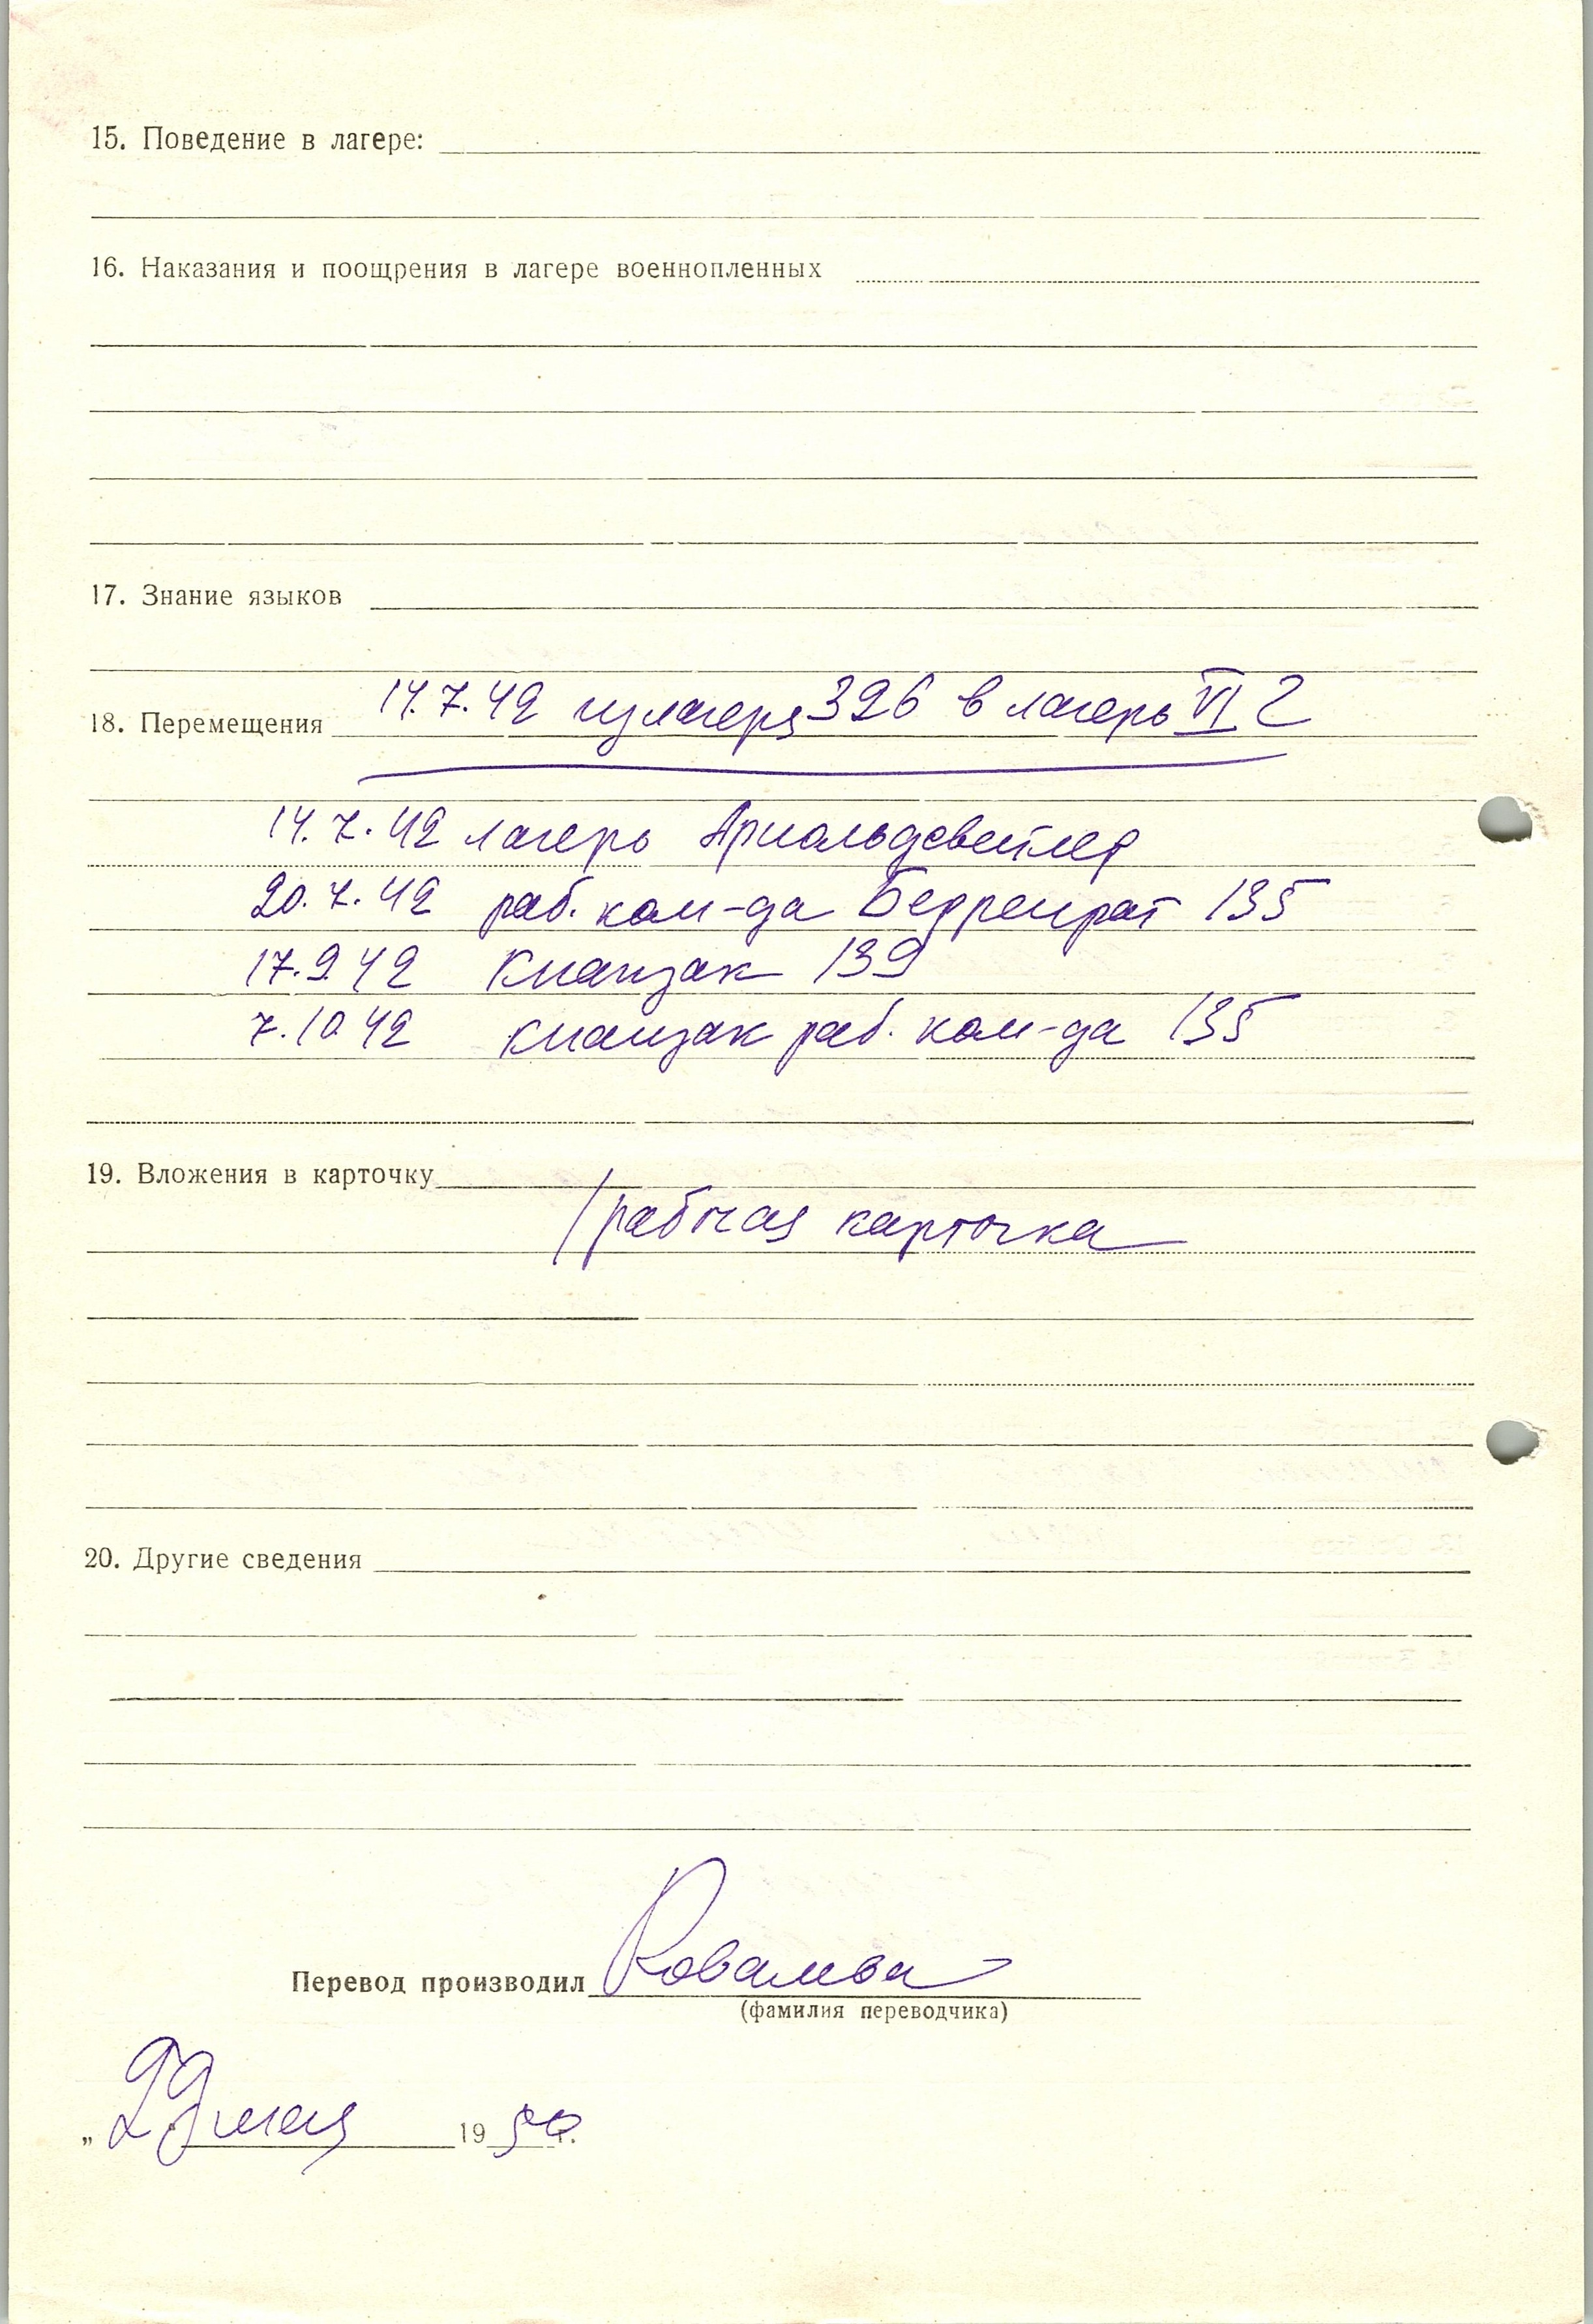 15. Поведение в лагере:
16. Наказания и поощрения в лагере военнопленных
17. Знание языков
18. Перемещения 14.7.42 из лагеря 326 в лагерь VI
14.7.42 лагерь Арнольдсвейлер
20.7.42 раб. ком-да Берренрат 135
17.9 42 Кнапзак 139
7.10 42 Кнапзак раб. ком-да 135
19. Вложения в карточку
рабочая карточка
20. Другие сведения
Перевод производил
(фамилия переводчика)
„ 29 мая 1950 г.